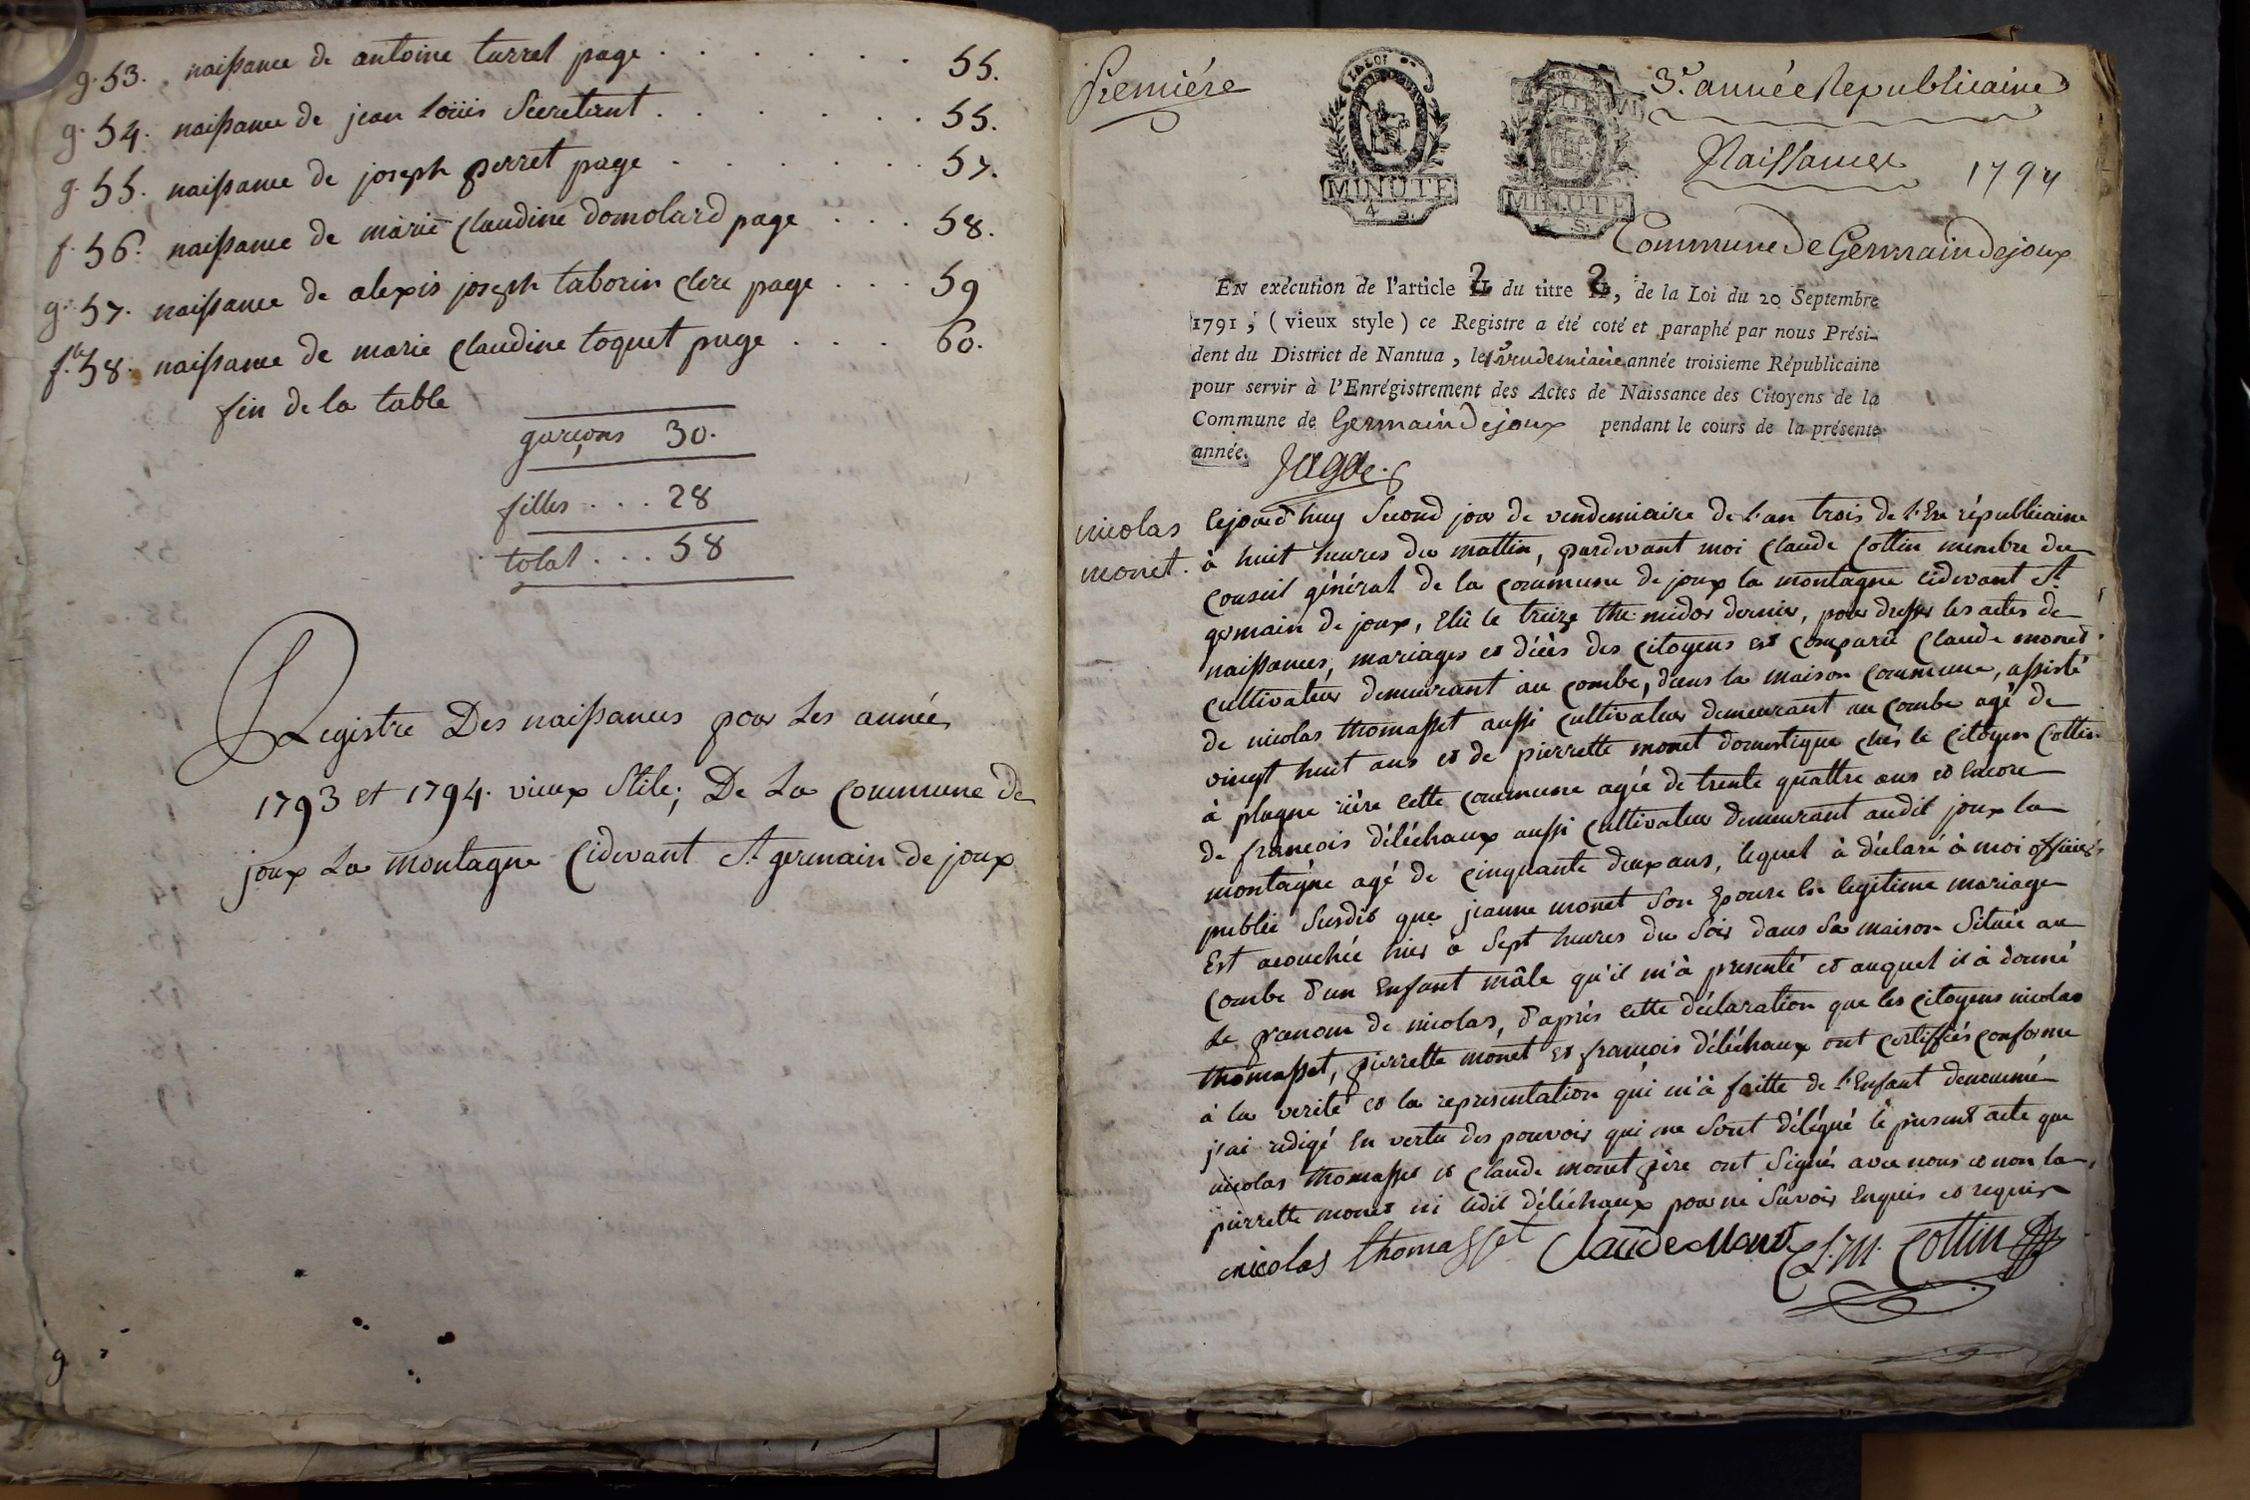 g. 53. naissance de antoine turrel page . . . . . . 55.
g. 54. naissance de jean Loüis Secretant . . . . . . 55.
g. 55. naissance de joseph perret page . . . . . . 57.
f. 56. naissance de marie Claudine domolard page . . . 58.
g. 57. naissance de alexis joseph taborin clerc page . . . 59
f. 58. naissance de marie Claudine toquet page . . . . 60.
fin de la table
garçons 30.
filles . . . 28
total . . . 58
Registre Des naissances pour Les année
1793 et 1794. vieux Stile; De La Commune de
joux La montagne Cidevant St germain de joux
g
Premiére
LA LOI
MINUTE
4 S.
MINUTE
4 S.
3e. année Republicaine
Naissances 1794
Commune de Germain de joux
EN exécution de l'article 2 du titre 2, de la Loi du 20 Septembre
1791, (vieux style) ce Registre a été coté et paraphé par nous Prési-
dent du District de Nantua, le vendemiaire année troisieme Républicaine
pour servir à l'Enrégistrement des Actes de Naissance des Citoyens de la
Commune de Germain de joux pendant le cours de la présente
année.
nicolas
monet.
Cejourd'huy Second jour de vendemiaire de l'an trois de l'Ere républicaine
à huit heures du mattin, pardevant moi Claude Cottin membre du
Conseil général de la Commune de joux la montagne cidevant St
germain de joux, Elû le treize thermidor dernier, pour dresser les actes de
naissances, mariages et décès des Citoyens est comparu Claude monet
Cultivateur demeurant au Combe, dans la maison Commune, assisté
de nicolas thomasset aussi Cultivateur demeurant au Combe agé de
vingt huit ans et de pierrette monet domestique chés le Citoyen Cottin
à plagne rière cette Commune agée de trente quattre ans et encore
de francois déléchaux aussi Cultivateur demeurant audit joux la
montagne agé de Cinquante deux ans, lequel à déclaré à moi officier
public Susdit que jeanne monet Son Epouse En legitime mariage
Est acouchée hier à Sept heures du Soir dans Sa maison Située au
Combe d'un Enfant mâle qu'il m'à presenté et auquel il à donné
Le prenom de nicolas, d'après cette déclaration que les Citoyens nicolas
thomasset, pierrette monet et francois déléchaux ont Certiffiés conforme
à la verité et la representation qui m'à faitte de l'Enfant denommé
j'ai redigé En vertu des pouvoir qui me Sont délégué le present acte que
nicolas thomasset et Claude monet père ont Signés avec nous et non la
pierrette monet ni ledit déléchaux pour ne Savoir Enquis et requis
nicolas thomasset Claude Monet C.M. Cottin